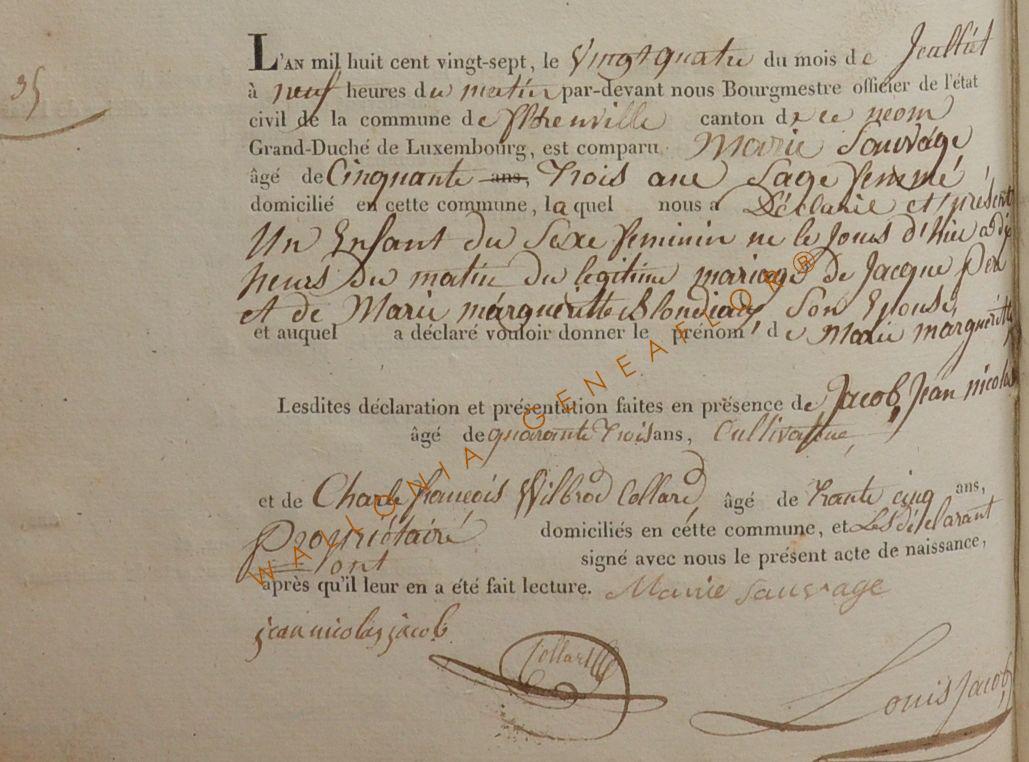 35
L'AN mil huit cent vingt-sept, le Vingt quatre du mois de Jeulliet
à neuf heures du matin par-devant nous Bourgmestre officier de l'état
civil de la commune de fflorenville canton de ce neom
Grand-Duché de Luxembourg, est comparu Marie Sauvage
âgé de Cinquante ans, Trois ans Sage femme
domicilié en cette commune, laquel nous a Déclarée et présent
Un Enfant du Sexe feminin ne le Jours d'hier a dix
heurs du matin du legitime mariage de Jacque
et de Marie margueritte Blondiau, Son Epouse,
et auquel a déclaré vouloir donner le prénom de Marie margueritte
Lesdites déclaration et présentation faites en présence de Jacob, Jean nicolas
âgé de quarante Trois ans, Cultivateure,
et de Charle françois Wilbrod Collard âgé de Trante cinq ans,
Proprietaire domiciliés en cette commune, et Les déclarant
sont signé avec nous le présent acte de naissance,
après qu'il leur en a été fait lecture. Marie Sauvage
jean nicolas jacob
Collard
Louis Jacob
WALLONIA GENEAFLOR®